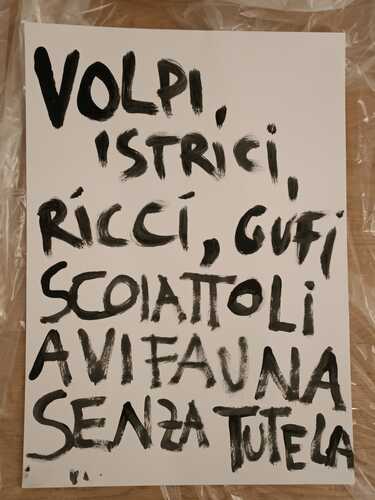 VOLPI,
ISTRICI,
RICCI, GUFI
SCOIATTOLI
AVIFAUNA
SENZA TUTELA